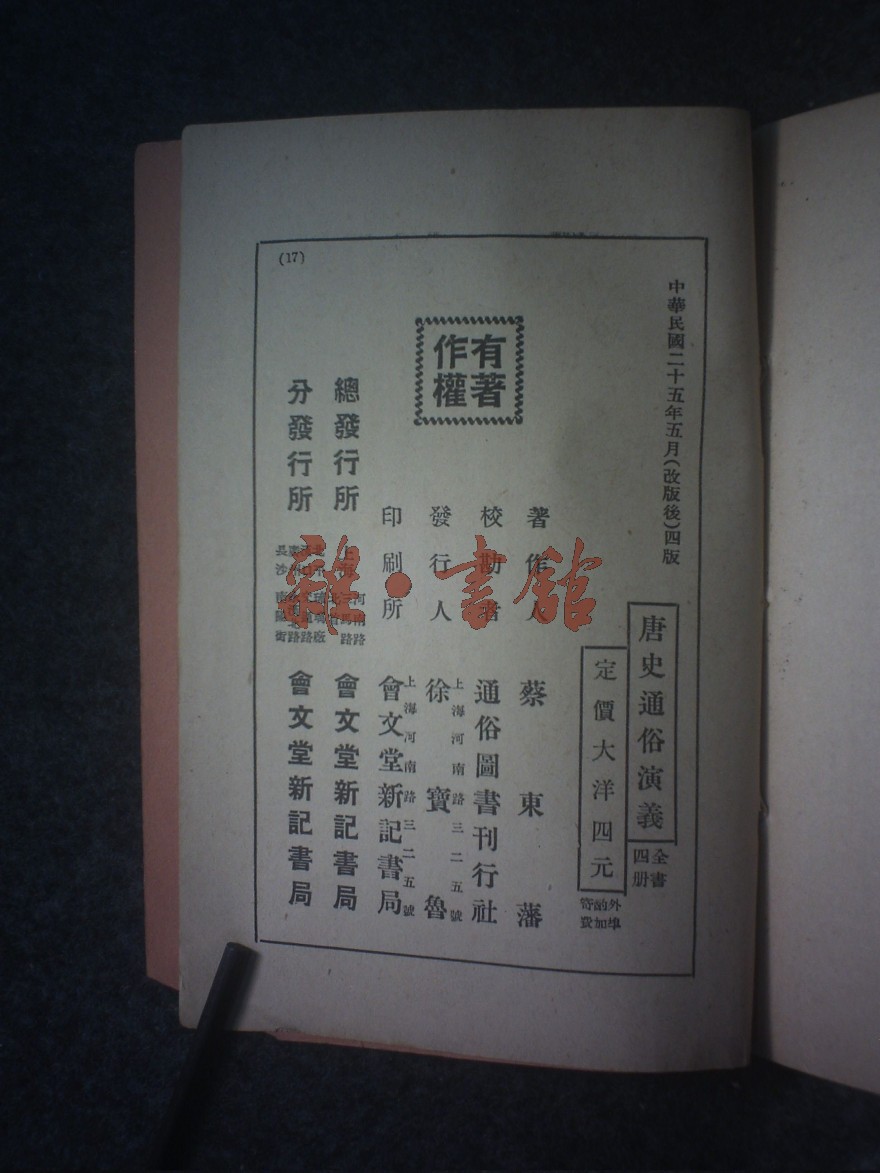 中華民國二十五年五月(改版後)四版
唐史通俗演義
全書四册
定價大洋四元
外埠酌加寄費
著作人 蔡東藩
校勘者 通俗圖書刊行社
發行人 徐寶魯
上海河南路三二五號
印刷所 會文堂新記書局
上海河南路三二五號
有著作權
總發行所 上海 河南路 會文堂新記書局
分發行所 長沙 南陽街 會文堂新記書局
(17)
雜·書館